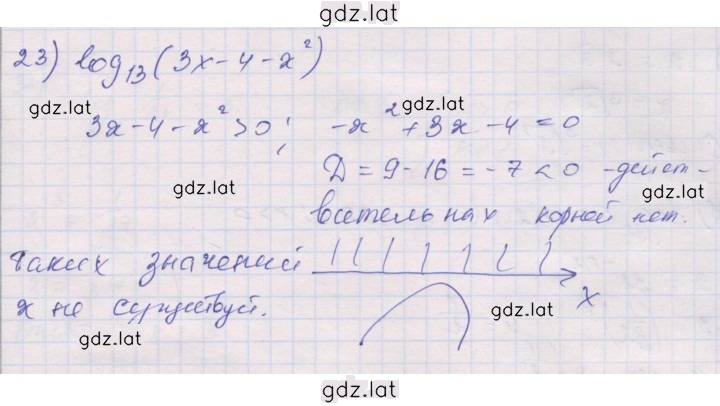 gdz.lat
23) log₁₃(3x-4-x²)
gdz.lat gdz.lat
3x-4-x²>0; -x²+3x-4=0
Д = 9-16 = -7 < 0 -дейст-
gdz.lat gdz.lat
вительных корней нет.
таких значений
x не существует. x
gdz.lat gdz.lat
gdz.lat